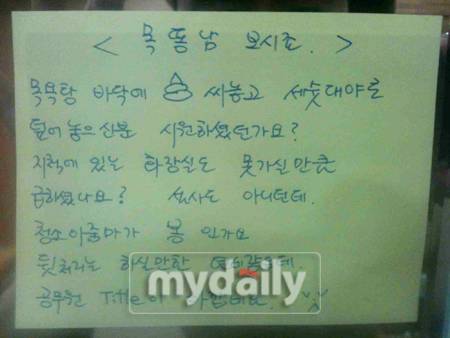 < 목똥남 보시죠. >
목욕탕 바닥에 💩 싸놓고 세숫대야로
덮어 놓으신분 시원하셨던가요?
지척에 있는 화장실도 못가실만큼
급하셨나요? 설사도 아니던데.
청소아줌마가 봉 인가요
뒷처리는 하실만한
공무원 Title이
mydaily